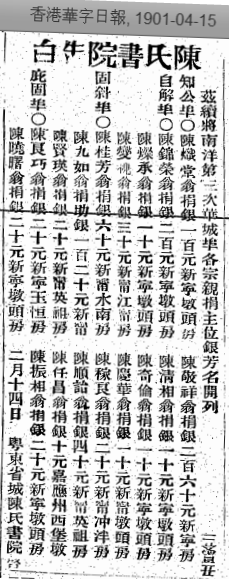 香港華字日報, 1901-04-15
陳氏書院告白
茲續將南洋第三次華城埠各宗親捐主位銀芳名開列
知公埠〇陳熾堂翁捐銀一百元新寧墩頭房 陳敬祥翁捐銀二百六十元新寧房
自解埠〇陳錦榮翁捐銀二百元新寧墩頭房 陳清相翁捐銀一十元新寧墩頭房
陳燦承翁捐銀一十元新寧墩頭房 陳奇倫翁捐銀一十元新寧墩頭房
陳燮翁捐銀三十元新甯江甯房 陳慶華翁捐銀一十元新甯墩頭房
固斜埠〇陳桂芳翁捐銀六十元新甯水南房 陳稼良翁捐銀二十元新甯冲泮房
陳九如翁捐助銀一百二十元新甯 陳順詒翁捐銀四十元新甯英祖房
陳賢英翁捐銀二十元新甯英祖房 陳任昌翁捐銀十元嘉應州西堡墩
庇固埠〇陳良巧翁捐銀二十元新寧玉恒房 陳振相翁捐銀二十元新寧墩頭房
陳曉曙翁捐銀二十元新寧墩頭房 二月十四日 粵東省城陳氏書院